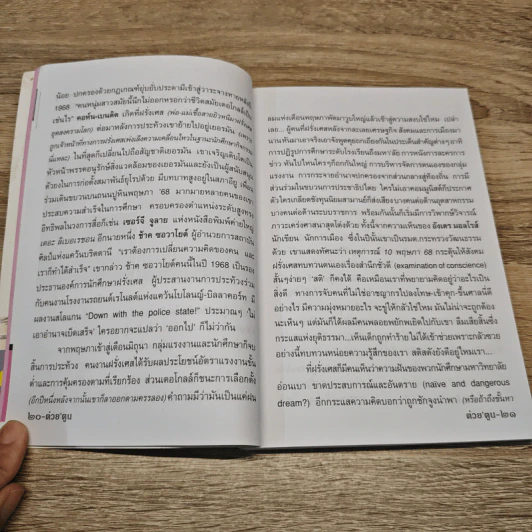 น้อย ปกครองด้วยกฎเกณฑ์ยุ่บยั่บประดามีเข้าสู่วาระจางหายหลัง
1968 "คนหนุ่มสาวสมัยนี้นึกไม่ออกหรอกว่าชีวิตสมัยเดอโกลล์
เช่นไร" คอห์น-เบนดิต เกิดที่ฝรั่งเศส (พ่อ-แม่เชื้อสายยิว
ยุคสงครามโลก) ต่อมาหลังการประท้วงเขาย้ายไปอยู่เยอรมัน
ในที่สุดก็เปลี่ยนไปถือสัญชาติเยอรมัน เขาเจริญเติบโตเป็น
หัวหน้าพรรคอนุรักษ์สิ่งแวดล้อมของเยอรมันและยังเป็นผู้สนับสนุน
ตัวยงในการก่อตั้งสมาพันธ์ยุโรปด้วย มีบทบาทสูงอยู่ในสภาอียู เพื่อน
ร่วมเดินขบวนบนถนนปูหินพฤษภา '68 มากมายหลายคนของเขา
ประสบความสำเร็จในการศึกษา ครอบครองตำแหน่งระดับสูงทรง
อิทธิพลในวงการสื่อก็เช่น เซอร์จี จูลาย แห่งหนังสือพิมพ์ค่ายใหญ่
เดอะ ลิเบอเรชอน อีกนายหนึ่ง ช้าค ซอวาโยต์ ผู้อำนวยการสถาบัน
ศิลป์แห่งแคว้นบริตตานี "เราต้องการเปลี่ยนความคิดของคน และ
เราก็ทำได้สำเร็จ" เขากล่าว ช้าค ซอวาโยต์คนนี้ในปี 1968 เป็นรอง
ประธานองค์การนักศึกษาฝรั่งเศส ผู้ประสานงานการประท้วงร่วม
กับคนงานโรงงานรถยนต์เรโนลต์แห่งแคว้นโบโลญญ์-บิลลาคอร์ท มี
ผลงานสโลแกน "Down with the police state!" ประมาณๆ 'ไม่
เอาอำนาจเบ็ดเสร็จ' ใครอยากจะแปลว่า 'ออกไป' ก็ไม่ว่ากัน
จากพฤษภาเข้าสู่เดือนมิถุนา กลุ่มแรงงานและนักศึกษาก็จบ
สิ้นการประท้วง คนงานฝรั่งเศสได้รับผลประโยชน์อัตราแรงงานขั้น
ต่ำและการคุ้มครองตามที่เรียกร้อง ส่วนเดอโกลล์ก็ชนะการเลือกตั้ง
(อีกปีหนึ่งหลังจากนั้นเขาก็ลาออกตามครรลอง) คำถามมีว่ามันเป็นแค่ฝน
๒๐-ต่วย'ตูน
ลมแห่งเดือนพฤษภาพัดมาวูบใหญ่แล้วเข้าสู่ความสงบใช่ไหม เปล่า
เลย... ผู้คนที่ฝรั่งเศสหลังจากละเลยเศรษฐกิจ สังคมและการเมืองมา
นานหันมาเอาจริงเอาจังพูดคุยถกเถียงกันในประเด็นสำคัญต่างๆ อาทิ
การปฏิรูปการศึกษาระดับโรงเรียนถึงมหา'ลัย การหนังการละครการ
ข่าว หันไปไหนใครๆ ก็ถกกันใหญ่ การบริหารจัดการตนเองของกลุ่ม
แรงงาน การกระจายอำนาจปกครองจากส่วนกลางสู่ท้องถิ่น การมี
ส่วนร่วมในขบวนการประชาธิปไตย ใครไม่เอาคอมมูนิสต์ก็ประกาศ
ตัว ใครเกลียดชังทุนนิยมสามานย์ก็ส่งเสียงบางคนต่อต้านอุตสาหกรรม
บางคนต่อต้านระบบราชการ พร้อมกันนั้นก็เริ่มมีการวิพากษ์วิจารณ์
ภาวะเคร่งศาสนาสุดโต่งด้วย ทั้งนี้จากความเห็นของ อังเดร มอลโรส์
นักเขียน นักการเมือง ซึ่งในปีนั้นเขาเป็นรมต.กระทรวงวัฒนธรรม
ด้วย เขาแสดงทัศนะว่า เหตุการณ์ 10 พฤษภา 68 กระตุ้นให้สังคม
ฝรั่งเศสทบทวนตนเองเรื่องสำนึกชั่วดี (examination of conscience)
สั้นๆง่ายๆ 'สติ' ก็คงได้ คือเหมือนเราที่พยายามคิดอยู่ว่าอะไรเป็น
สิ่งดี ทางการจับคนที่ไม่ใช่อาชญากรไปลงโทษ-เข้าคุก-ขึ้นศาลนี่ดี
อย่างไร มีความมุ่งหมายอะไร จะขู่ให้กลัวใช่ไหม มันไม่น่าจะถูกต้อง
นะเห็นๆ แต่มันก็ได้ผลมีคนพลอยพยักเพยิดไปกับเขา ลืมเสียสิ้นซึ่ง
กระแสแห่งยุติธรรม...เห็นเด็กถูกทำร้ายไม่ได้เข้าช่วยเพราะกลัวซวย
อย่างนี้ทบทวนหน่อยความรู้สึกของเรา สติสตังยังดีอยู่ไหมเรา...
ที่ฝรั่งเศสก็มีคนเห็นว่าความฝันของพวกนักศึกษามหาวิทยาลัย
อ่อนเบา ขาดประสบการณ์และอันตราย (naïve and dangerous
dream?) อีกกระแสความคิดบอกว่าถูกชักจูงนำพา (หรือถ้าถึงขั้นหา
ต่วย'ตูน-๒๑